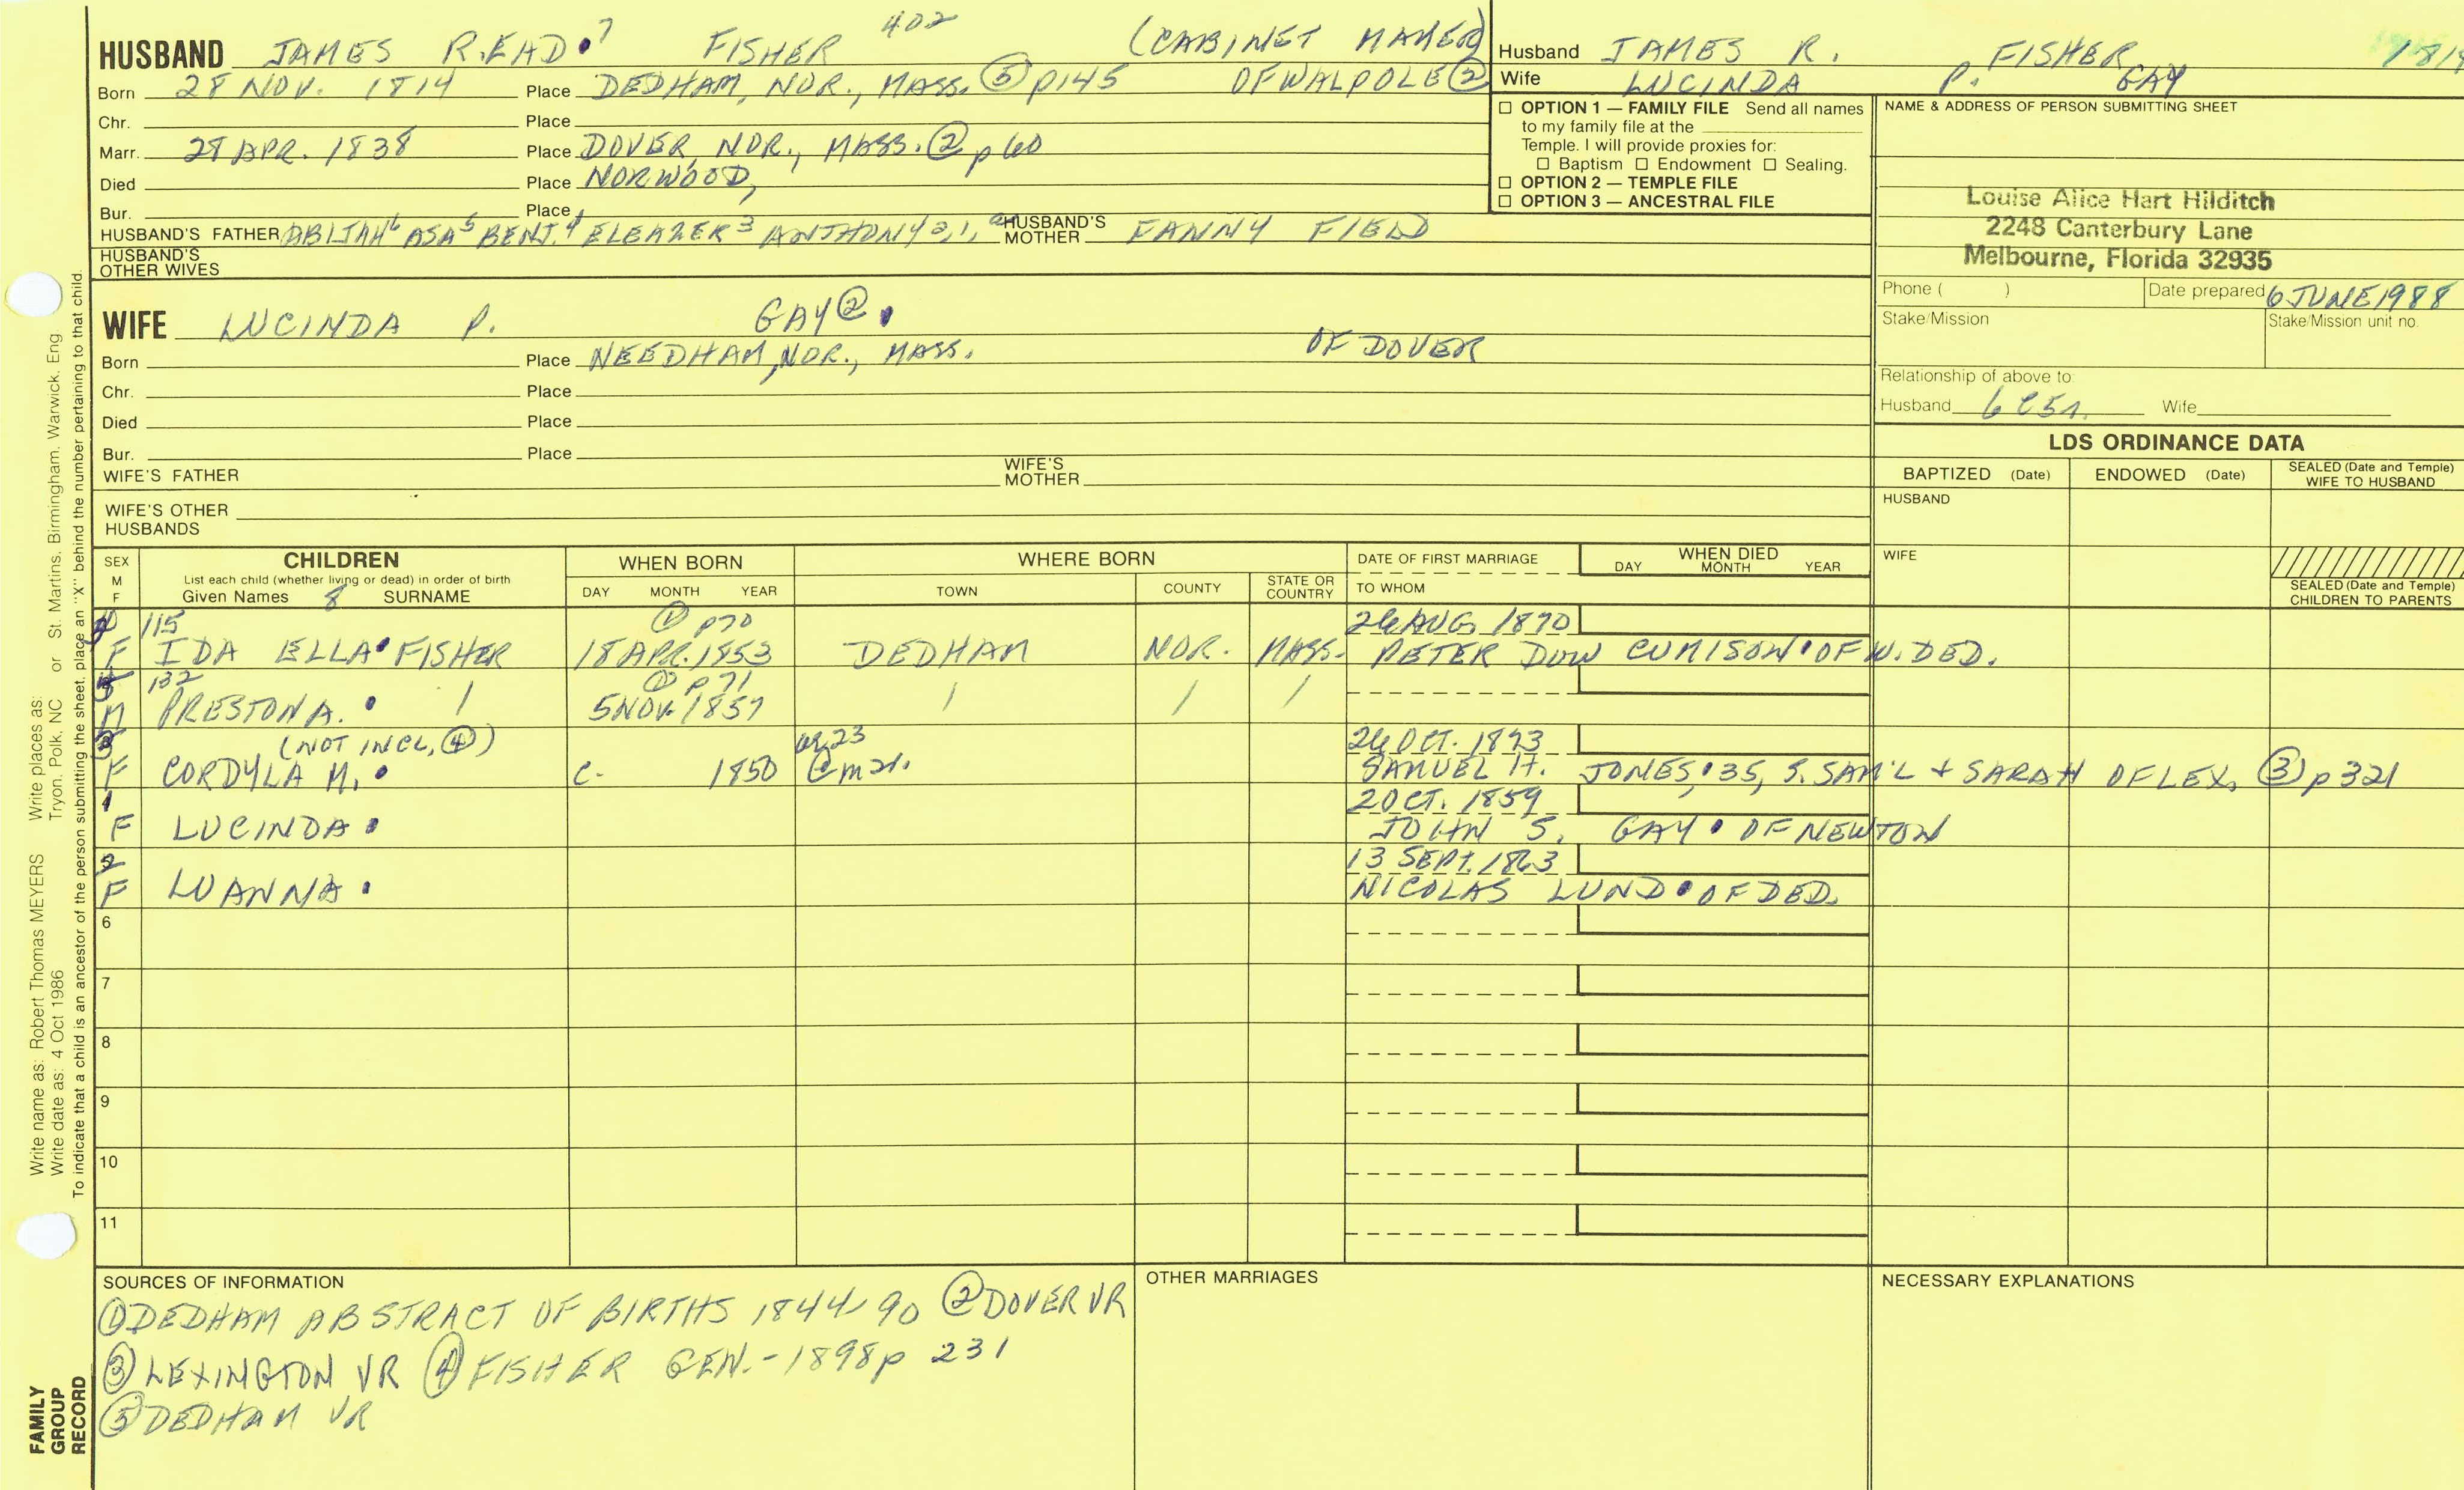 HUSBAND JAMES READ 7 FISHER 402 (CABINET MAKER)
Born 28 NOV. 1814 Place DEDHAM, NOR., MASS. ⑤ p145 OF WALPOLE ②
Chr. Place
Marr. 28 APR. 1838 Place DOVER, NOR., MASS. ② p 60
Died Place NORWOOD,
Bur. Place
HUSBAND'S FATHER ABIJAH 6 ASA 5 BENJ. 4 ELEAZER 3 ANTHONY 2, 1, HUSBAND'S MOTHER FANNY FIELD
HUSBAND'S OTHER WIVES
Husband JAMES R. FISHER
Wife LUCINDA P. GAY
☐ OPTION 1 — FAMILY FILE Send all names
to my family file at the
Temple. I will provide proxies for:
☐ Baptism ☐ Endowment ☐ Sealing.
☐ OPTION 2 — TEMPLE FILE
☐ OPTION 3 — ANCESTRAL FILE
NAME & ADDRESS OF PERSON SUBMITTING SHEET
Louise Alice Hart Hilditch
2248 Canterbury Lane
Melbourne, Florida 32935
Phone ( ) Date prepared 6 JUNE 1988
Stake/Mission Stake/Mission unit no.
Relationship of above to:
Husband Wife
WIFE LUCINDA P. GAY ②
Born Place NEEDHAM, NOR., MASS. OF DOVER
Chr. Place
Died Place
Bur. Place
WIFE'S FATHER WIFE'S MOTHER
WIFE'S OTHER HUSBANDS
LDS ORDINANCE DATA
BAPTIZED (Date) ENDOWED (Date) SEALED (Date and Temple) WIFE TO HUSBAND
HUSBAND
WIFE
SEALED (Date and Temple) CHILDREN TO PARENTS
SEX M F
CHILDREN
List each child (whether living or dead) in order of birth
Given Names 8 SURNAME
WHEN BORN
DAY MONTH YEAR
WHERE BORN
TOWN COUNTY STATE OR COUNTRY
DATE OF FIRST MARRIAGE
TO WHOM
WHEN DIED
DAY MONTH YEAR
115 ① p70 26 AUG. 1870
F IDA ELLA FISHER 18 APR. 1853 DEDHAM NOR. MASS. PETER DOW CUMISON OF W. DED.
132 ① p 71
M PRESTON A. / 5 NOV. 1857 / / /
3 (NOT INCL, ④) 23 26 OCT. 1873
F CORDYLA M. c. 1850 @ m 21. SAMUEL H. JONES, 35, S. SAM'L + SARAH OF LEX, ③ p 321
1 2 OCT. 1859
F LUCINDA JOHN S. GAY OF NEWTON
2 13 SEPT. 1863
F LUANNA NICOLAS LUND OF DED.
6
7
8
9
10
11
SOURCES OF INFORMATION
① DEDHAM ABSTRACT OF BIRTHS 1844-90 ② DOVER VR
③ LEXINGTON VR ④ FISHER GEN. - 1898 p 231
⑤ DEDHAM VR
OTHER MARRIAGES
NECESSARY EXPLANATIONS
Write name as: Robert Thomas MEYERS Write places as: Tryon, Polk, NC or St. Martins, Birmingham, Warwick, Eng
Write date as: 4 Oct 1986
To indicate that a child is an ancestor of the person submitting the sheet, place an "X" behind the number pertaining to that child.
FAMILY
GROUP
RECORD